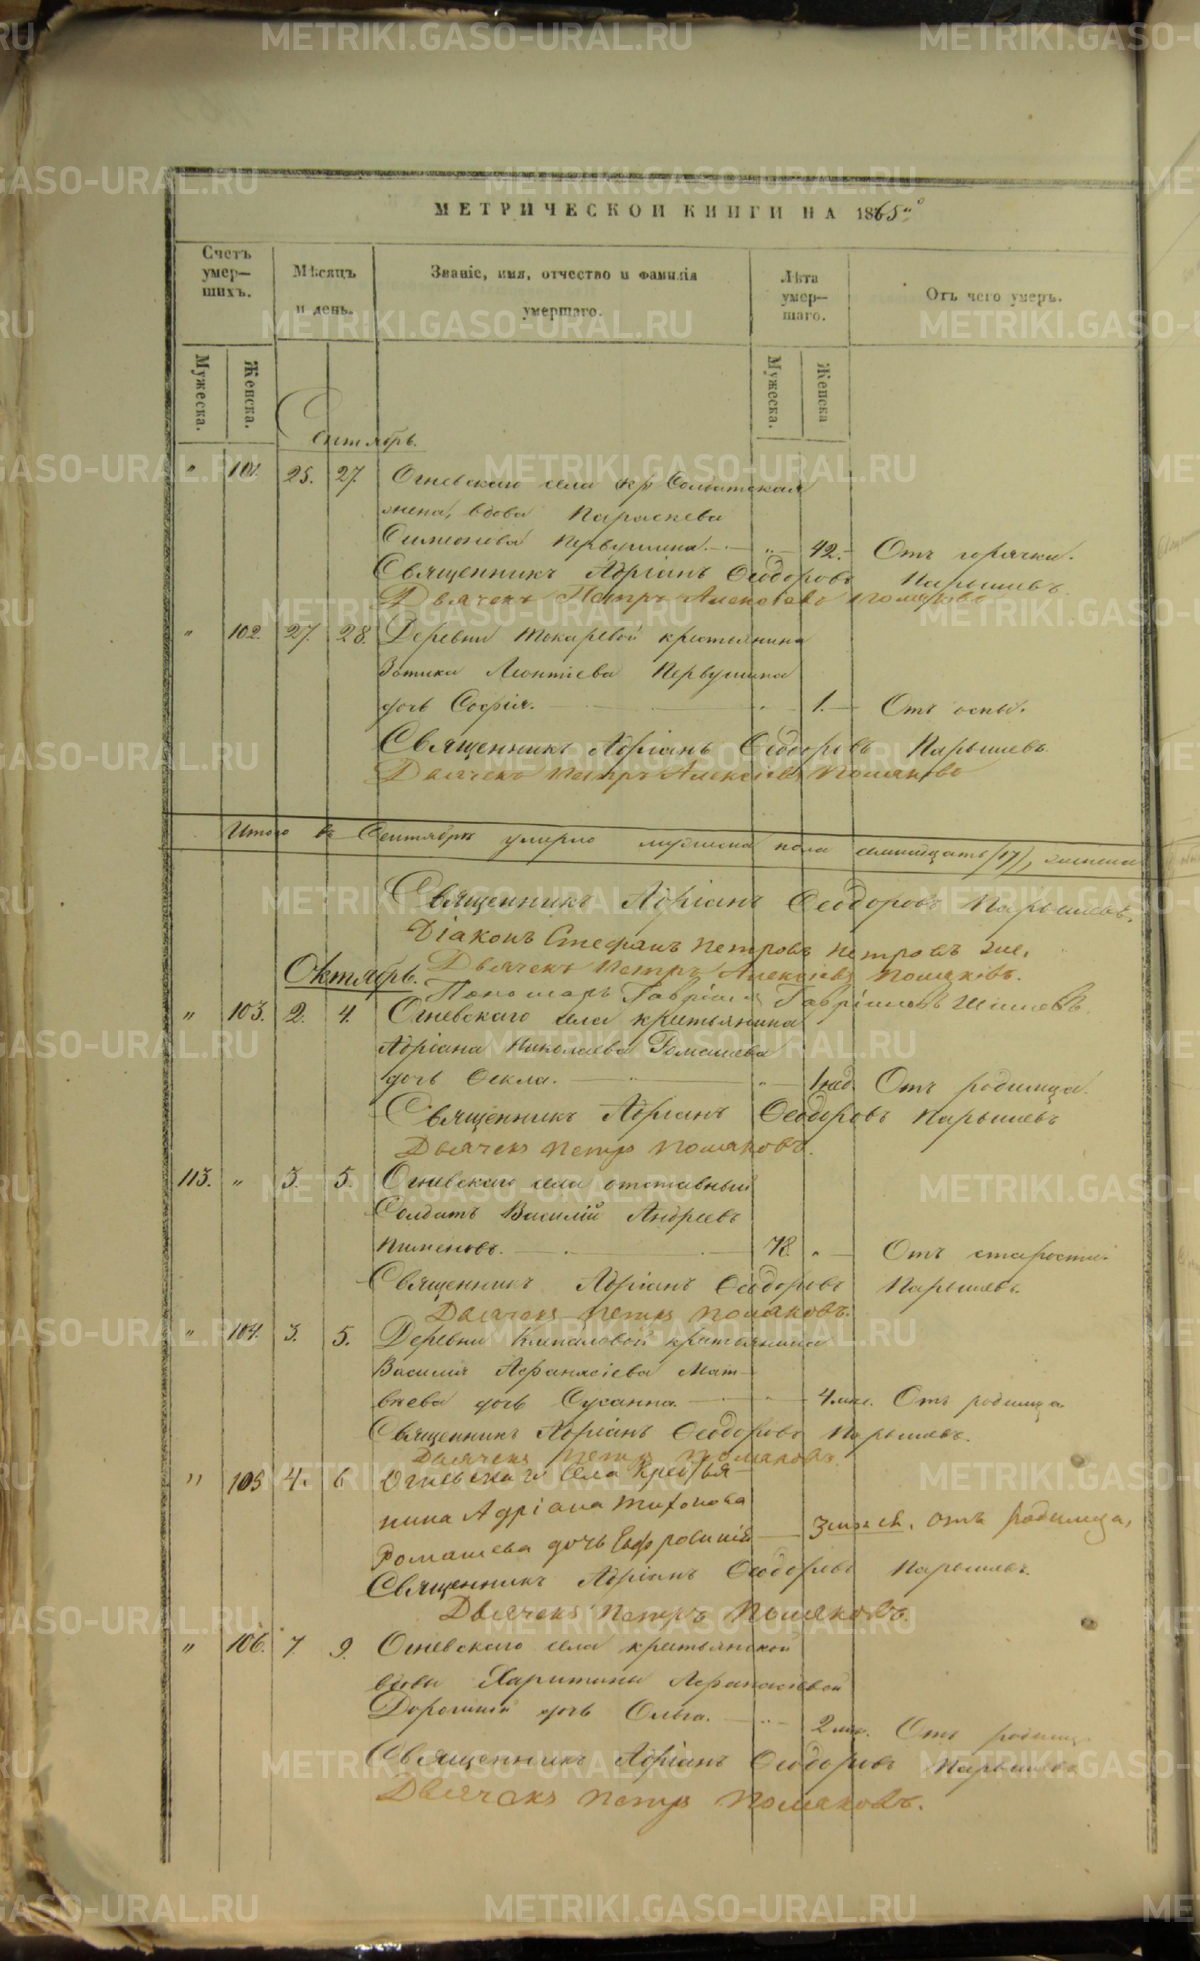 МЕТРИЧЕСКОЙ КНИГИ НА 1865го
Счетъ умер–шихъ.
Мѣсяцъ и день.
Званіе, имя, отчество и фамилія умершаго.
Лѣта умер–шаго.
Отъ чего умеръ.
Мужеска.
Женска.
Мужеска.
Женска
Сентябрь.
" 101. 25. 27. Огневскаго села кр Солдатская
жена, вдова Параскева
Симеонова Первушина. " 42. Отъ горячки.
Священникъ Адріанъ Ѳеодоровъ Парышевъ.
Дьячекъ Петръ Алексіевъ Помяковъ
" 102. 27. 28. Деревни Токаревой крестьянина
Зотика Леонтіева Первушина
дочь Софія. " 1. Отъ оспы.
Священникъ Адріанъ Ѳеодоровъ Парышевъ
Дьячекъ Петръ Алексіевъ Помяковъ
Итого въ Сентябрѣ умерло мужеска пола семнадцать (17), женска
Священникъ Адріанъ Ѳеодоровъ Парышевъ.
Діаконъ Стефанъ Петровъ Петровъ же.
Дьячекъ Петръ Алексіевъ Помяковъ.
Октябрь.
Пономарь Гавріилъ Гавріиловъ
" 103. 2. 4. Огневскаго села крестьянина
Адріана Николаева Ромашева
дочь Ѳекла. " 1 нед. Отъ родимца.
Священникъ Адріанъ Ѳеодоровъ Парышевъ
Дьячекъ Петръ Помяковъ.
113. " 3. 5. Огневскаго села отставный
Солдатъ Василій Андреевъ
Пименовъ. 78. " Отъ старости.
Священникъ Адріанъ Ѳеодоровъ Парышевъ.
Дьячекъ Петръ Помяковъ.
" 104. 3. 5. Деревни Клепаловой крестьянина
Василія Афанасіева Мат–
вѣева дочь Сусанна. " 4 мѣс. Отъ родимца.
Священникъ Адріанъ Ѳеодоровъ Парышевъ.
Дьячекъ Петръ Помяковъ
" 105 4. 6 Огневскаго села крестья–
нина Адріана Тихонова
Ромашева дочь Евфросинія 3 мѣсеу. Отъ родимца,
Священникъ Адріанъ Ѳеодоровъ Парышевъ.
Дьячекъ Петръ Помяковъ.
" 106. 7. 9. Огневскаго села крестьянской
вдовы Харитины Афанасіевой
дочь Ольга. " 2 мѣс. Отъ родимца
Священникъ Адріанъ Ѳеодоровъ Парышевъ
Дьячекъ Петръ Помяковъ.
METRIKI.GASO-URAL.RU